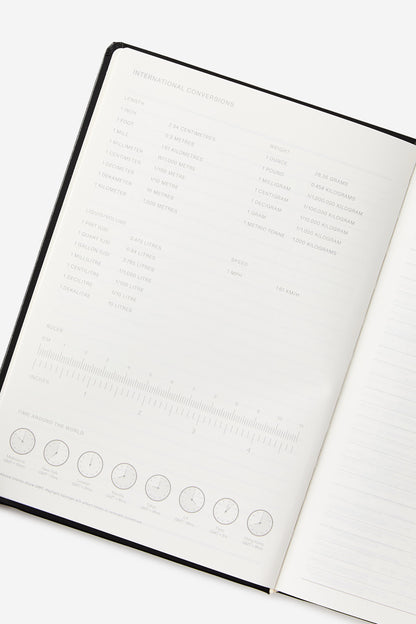 INTERNATIONAL CONVERSIONS
LENGTH
1 INCH 2.54 CENTIMETRES
1 FOOT 0.3 METRES
1 MILE 1.61 KILOMETRES
1 MILLIMETER 1/1000 METRE
1 CENTIMETER 1/100 METRE
1 DECIMETER 1/10 METRE
1 DEKAMETER 10 METRES
1 KILOMETER 1,000 METRES
WEIGHT
1 OUNCE 28.35 GRAMS
1 POUND 0.454 KILOGRAMS
1 MILLIGRAM 1/1,000,000 KILOGRAM
1 CENTIGRAM 1/100,000 KILOGRAM
1 DECIGRAM 1/10,000 KILOGRAM
1 GRAM 1/1,000 KILOGRAM
1 METRIC TONNE 1,000 KILOGRAMS
LIQUID/VOLUME
1 PINT (US) 0.473 LITRES
1 QUART (US)
1 GALLON (US) 3.785 LITRES
1 MILLILITRE 1/1000 LITRE
1 CENTILITRE 1/100 LITRE
1 DECILITRE 1/10 LITRE
1 DEKALITRE 10 LITRES
SPEED
1 MPH 1.61 KM/H
RULER
CM 1 2 3 4 5 6 7 8 9 10 11
INCHES 1 2 3 4
TIME AROUND THE WORLD